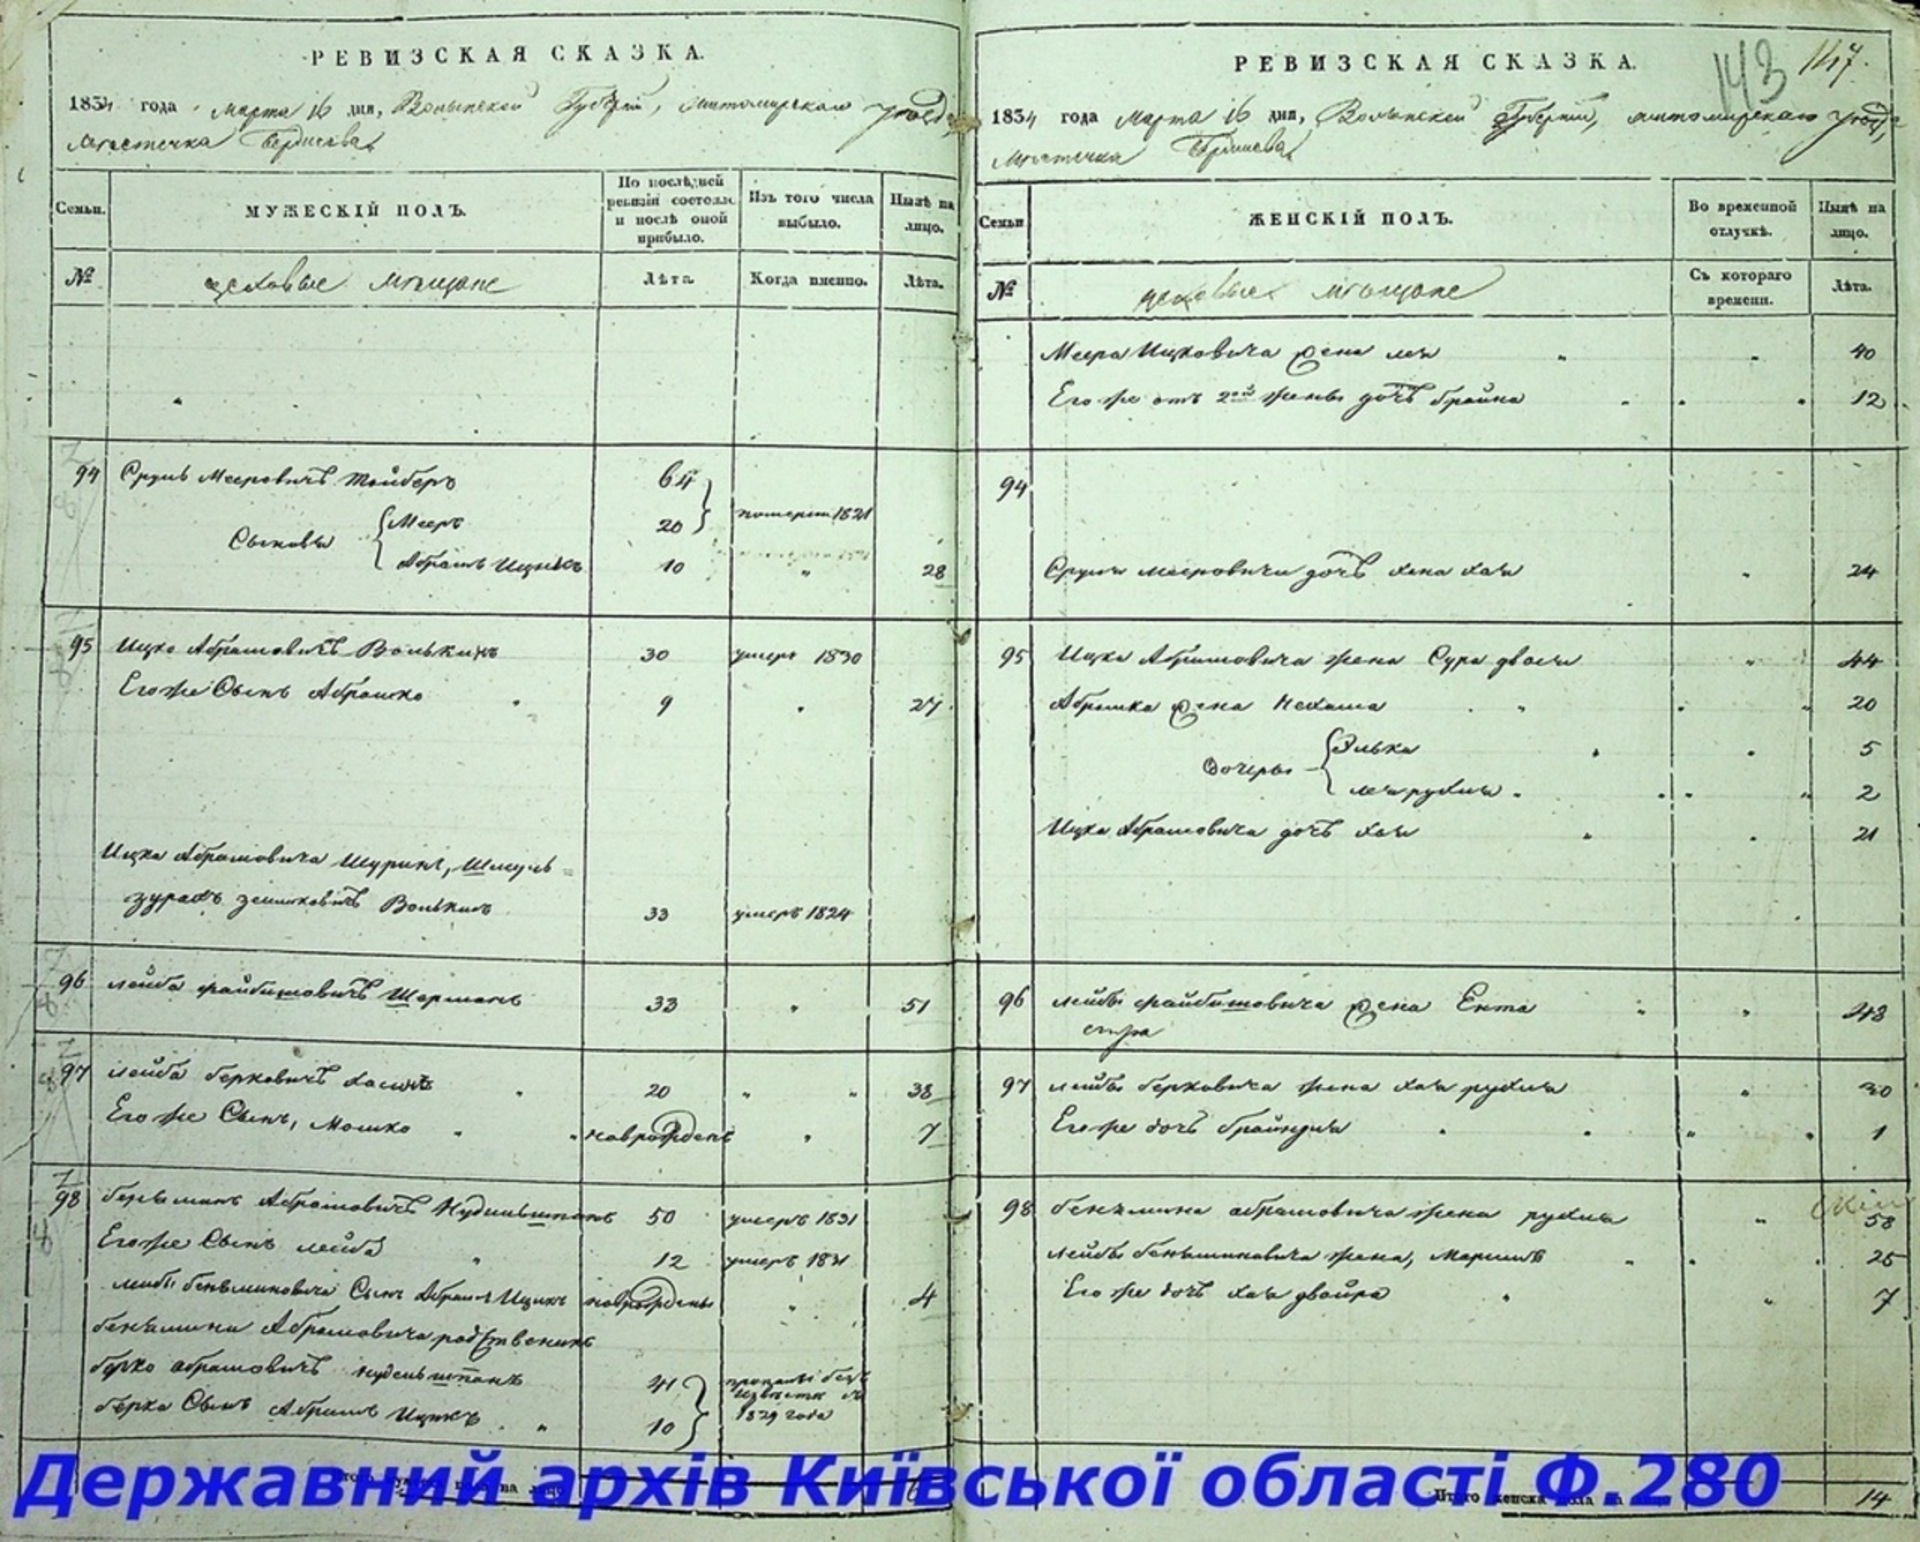 РЕВИЗСКАЯ СКАЗКА.
1834 года марта 16 дня, Волынской Губерніи, житомирскаго уезда,
Местечка Бердичева
Семьи. МУЖЕСКІЙ ПОЛЪ. По послѣдней ревизіи состояло и послѣ оной прибыло. Изъ того числа выбыло. Нынѣ на лицо.
№ цеховые мещане Лѣта. Когда именно. Лѣта.
94 Сруль Мееровичъ Тойберъ 64
Сыновья Мееръ 20 померли 1821
Абрамъ Ицикъ 10 " 28
95 Ицко Абрамовичъ Волькинъ 30 умеръ 1830
Его же Сынъ Абрашко 9 " 27
Ицка Абрамовича Шуринъ, Шмуль
зурахъ Волькинъ 33 умеръ 1824
96 лейба файбишовичъ Шерманъ 33 " 51
97 лейба берковичъ 20 " " 38
Его же Сынъ, Мошко " новрожденъ " 7
98 беньминъ Абрамовичъ Нудельшпанъ 50 умеръ 1831
Его же Сынъ лейба " 12 умеръ 1831
лейбы беньминовича Сынъ Абрамъ Ицикъ новрожденъ " 4
беньмина Абрамовича родственникъ
берко абрамовичъ нудельшпанъ 41 пропали безъ известн съ 1829 года
берка Сынъ Абрамъ Ицикъ " 10
на лицо
РЕВИЗСКАЯ СКАЗКА.
143 147.
1834 года марта 16 дня, Волынской Губерніи, житомирскаго уезда,
Местечка Бердичева
Семьи ЖЕНСКІЙ ПОЛЪ. Во временной отлучкѣ. Нынѣ на лицо.
№ цеховые мещане Съ котораго времени. Лѣта.
Меера Ицковича жена лея " " 40
Его же отъ 2ой жены дочь брайна " " " 12
94
Сруля мееровича дочь хана хая " 24
95 Ицка Абрамовича жена Сура двося " 44
Абрашка жена Нехама " " " 20
дочеры Элька " " 5
лея рухля " " " 2
Ицка Абрамовича дочь хая " " 21
96 лейбы файбишовича жена Ента " " 43
сура
97 лейбы берковича жена хая рухля " 30
Его же дочь брайндля " " " " 1
98 беньмина абрамовича жена рухля " 58
лейбы беньминовича жена, Маріимъ " " " 25
Его же дочь хая двойра " " 7
Итого женска пола на 14
Державний архів Київської області Ф.280